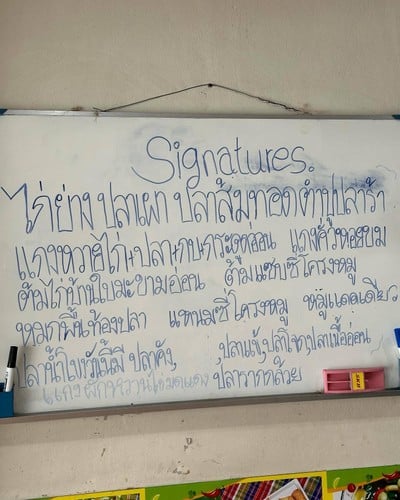 Signatures.
ไก่ย่าง ปลาเผา ปลาส้มทอด ตำปูปลาร้า
แกงหวายไก่+ปลา+กบ+กระดูกอ่อน แกงคั่วหอยขม
ต้มไก่บ้านใบมะขามอ่อน ต้มแซ่บซี่โครงหมู
หมกพื้นท้องปลา แหนมซี่โครงหมู หมูแดดเดียว
ปลาน้ำโขงวันนี้มี ปลาคัง, ปลาแข้, ปลาโจก, ปลาเนื้ออ่อน
แกงผักหวานไข่มดแดง ปลารากกล้วย